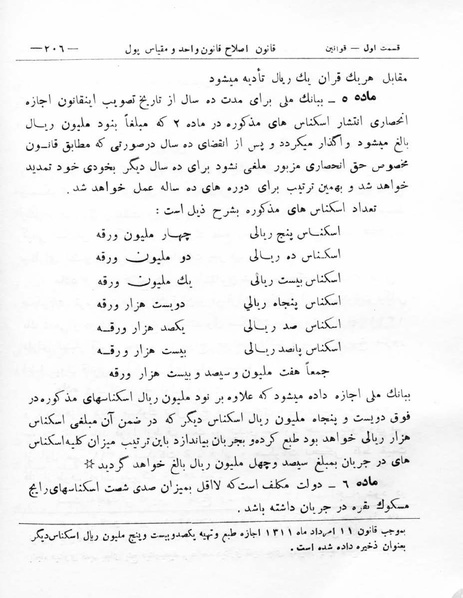 قسمت اول — قوانین
قانون اصلاح قانون واحد و مقیاس پول
—۲۰۶—
مقابل هر یك قران یك ریال تأدیه میشود
ماده ۵ — ببانك ملی برای مدت ده سال از تاریخ تصویب اینقانون اجازه
انحصاری انتشار اسكناس های مذكوره در ماده ۲ كه مبلغاً بنود ملیون ریال
بالغ میشود واگذار میگردد و پس از انقضای ده سال درصورتی كه مطابق قانون
مخصوص حق انحصاری مزبور ملغی نشود برای ده سال دیگر بخودی خود تمدید
خواهد شد و بهمین ترتیب برای دوره های ده ساله عمل خواهد شد .
تعداد اسكناس های مذكوره بشرح ذیل است :
اسكناس پنج ریالی چهار ملیون ورقه
اسكناس ده ریالی دو ملیون ورقه
اسكناس بیست ریالی یك ملیون ورقه
اسكناس پنجاه ریالی دویست هزار ورقه
اسكناس صد ریالی یكصد هزار ورقه
اسكناس پانصد ریالی بیست هزار ورقه
جمعاً هفت ملیون و سیصد و بیست هزار ورقه
ببانك ملی اجازه داده میشود كه علاوه بر نود ملیون ریال اسكناسهای مذكوره در
فوق دویست و پنجاه ملیون ریال اسكناس دیگر كه در ضمن آن مبلغی اسكناس
هزار ریالی خواهد بود طبع كرده و بجریان بیاندازد باین ترتیب میزان كلیه اسكناس
های در جریان بمبلغ سیصد و چهل ملیون ریال بالغ خواهد گردید※
ماده ۶ — دولت مكلف است كه لااقل بمیزان صدی شصت اسكناسهای رایج
مسكوك نقره در جریان داشته باشد .
بموجب قانون ۱۱ امرداد ماه ۱۳۱۱ اجازه طبع و تهیه یكصد و بیست و پنج ملیون ریال اسكناس دیگر
بعنوان ذخیره داده شده است .